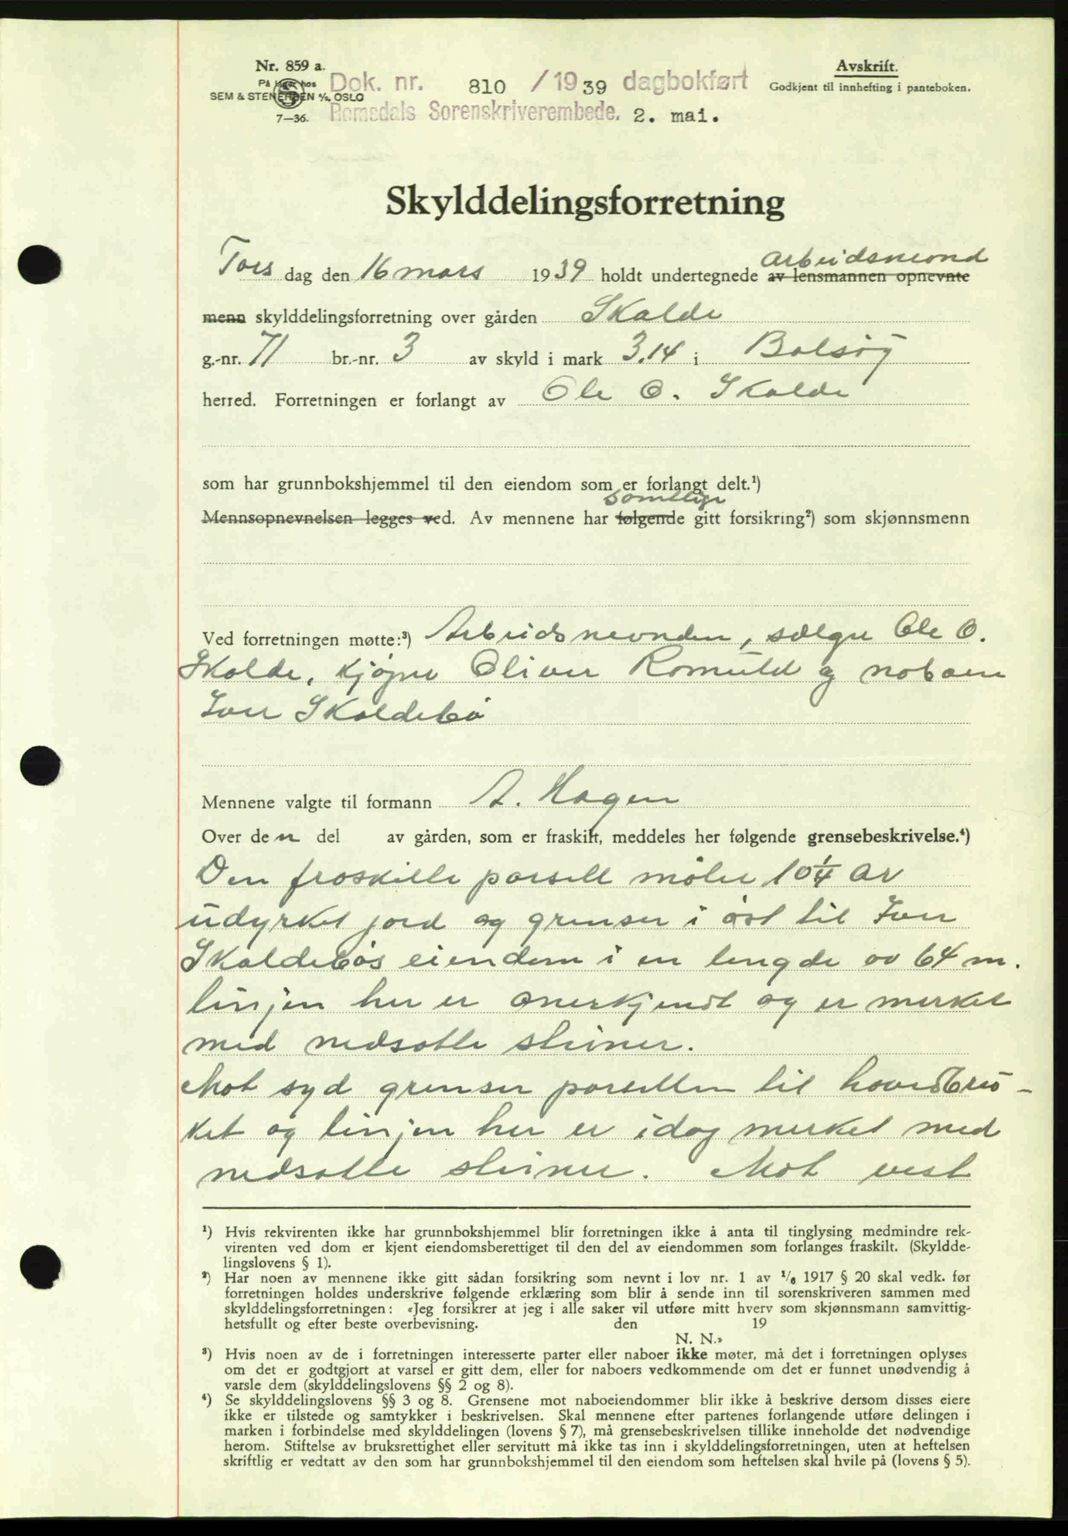 Nr. 859 a.
På lager hos
SEM & STENERSEN A/S, OSLO
7—36.
Dok. nr. 810 /1939 dagbokført
Romsdals Sorenskriverembede. 2. mai.
Avskrift.
Godkjent til innhefting i panteboken.
Skylddelingsforretning
Tors dag den 16 mars 1939 holdt undertegnede av lensmannen opnevnte arbeidsnevnd
menn skylddelingsforretning over gården Skalde
g.-nr. 71 br.-nr. 3 av skyld i mark 3,14 i Bolsøy
herred. Forretningen er forlangt av Ole O. Skalde
som har grunnbokshjemmel til den eiendom som er forlangt delt.¹)
samtlige
Mennsopnevnelsen legges ved. Av mennene har følgende gitt forsikring²) som skjønnsmenn
Ved forretningen møtte:³) Arbeidsnevnden, selger Ole O.
Skalde, kjøper Oliver Romuld og naboen
Iver Skaldebø
Mennene valgte til formann A. Hagen
Over den del av gården, som er fraskilt, meddeles her følgende grensebeskrivelse.⁴)
Den fraskilte parsell måler 10 1/4 ar
udyrket jord og grenser i øst til Iver
Skaldebøs eiendom i en lengde av 64 m.
linjen her er anerkjendt og er merket
med nedsatte steiner.
Mot syd grenser parsellen til hovedbru-
ket og linjen her er idag merket med
nedsatte steiner. Mot vest
¹) Hvis rekvirenten ikke har grunnbokshjemmel blir forretningen ikke å anta til tinglysing medmindre rek-
virenten ved dom er kjent eiendomsberettiget til den del av eiendommen som forlanges fraskilt. (Skyldde-
lingslovens § 1).
²) Har noen av mennene ikke gitt sådan forsikring som nevnt i lov nr. 1 av 1/6 1917 § 20 skal vedk. før
forretningen holdes underskrive følgende erklæring som blir å sende inn til sorenskriveren sammen med
skylddelingsforretningen: «Jeg forsikrer at jeg i alle saker vil utføre mitt hverv som skjønnsmann samvittig-
hetsfullt og efter beste overbevisning. den 19
N. N.»
³) Hvis noen av de i forretningen interesserte parter eller naboer ikke møter, må det i forretningen oplyses
om det er godtgjort at varsel er gitt dem, eller for naboers vedkommende om det er funnet unødvendig å
varsle dem (skylddelingslovens §§ 2 og 8).
⁴) Se skylddelingslovens §§ 3 og 8. Grensene mot naboeiendommer blir ikke å beskrive dersom disses eiere
ikke er tilstede og samtykker i beskrivelsen. Skal mennene efter partenes forlangende utføre delingen i
marken i forbindelse med skylddelingen (lovens § 7), må grensebeskrivelsen tillike inneholde det nødvendige
herom. Stiftelse av bruksrettighet eller servitutt må ikke tas inn i skylddelingsforretningen, uten at heftelsen
skriftlig er vedtatt av den som har grunnbokshjemmel til den eiendom som heftelsen skal hvile på (lovens § 5).